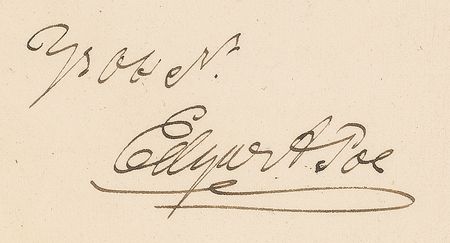 Yr Ob St.
Edgar A Poe